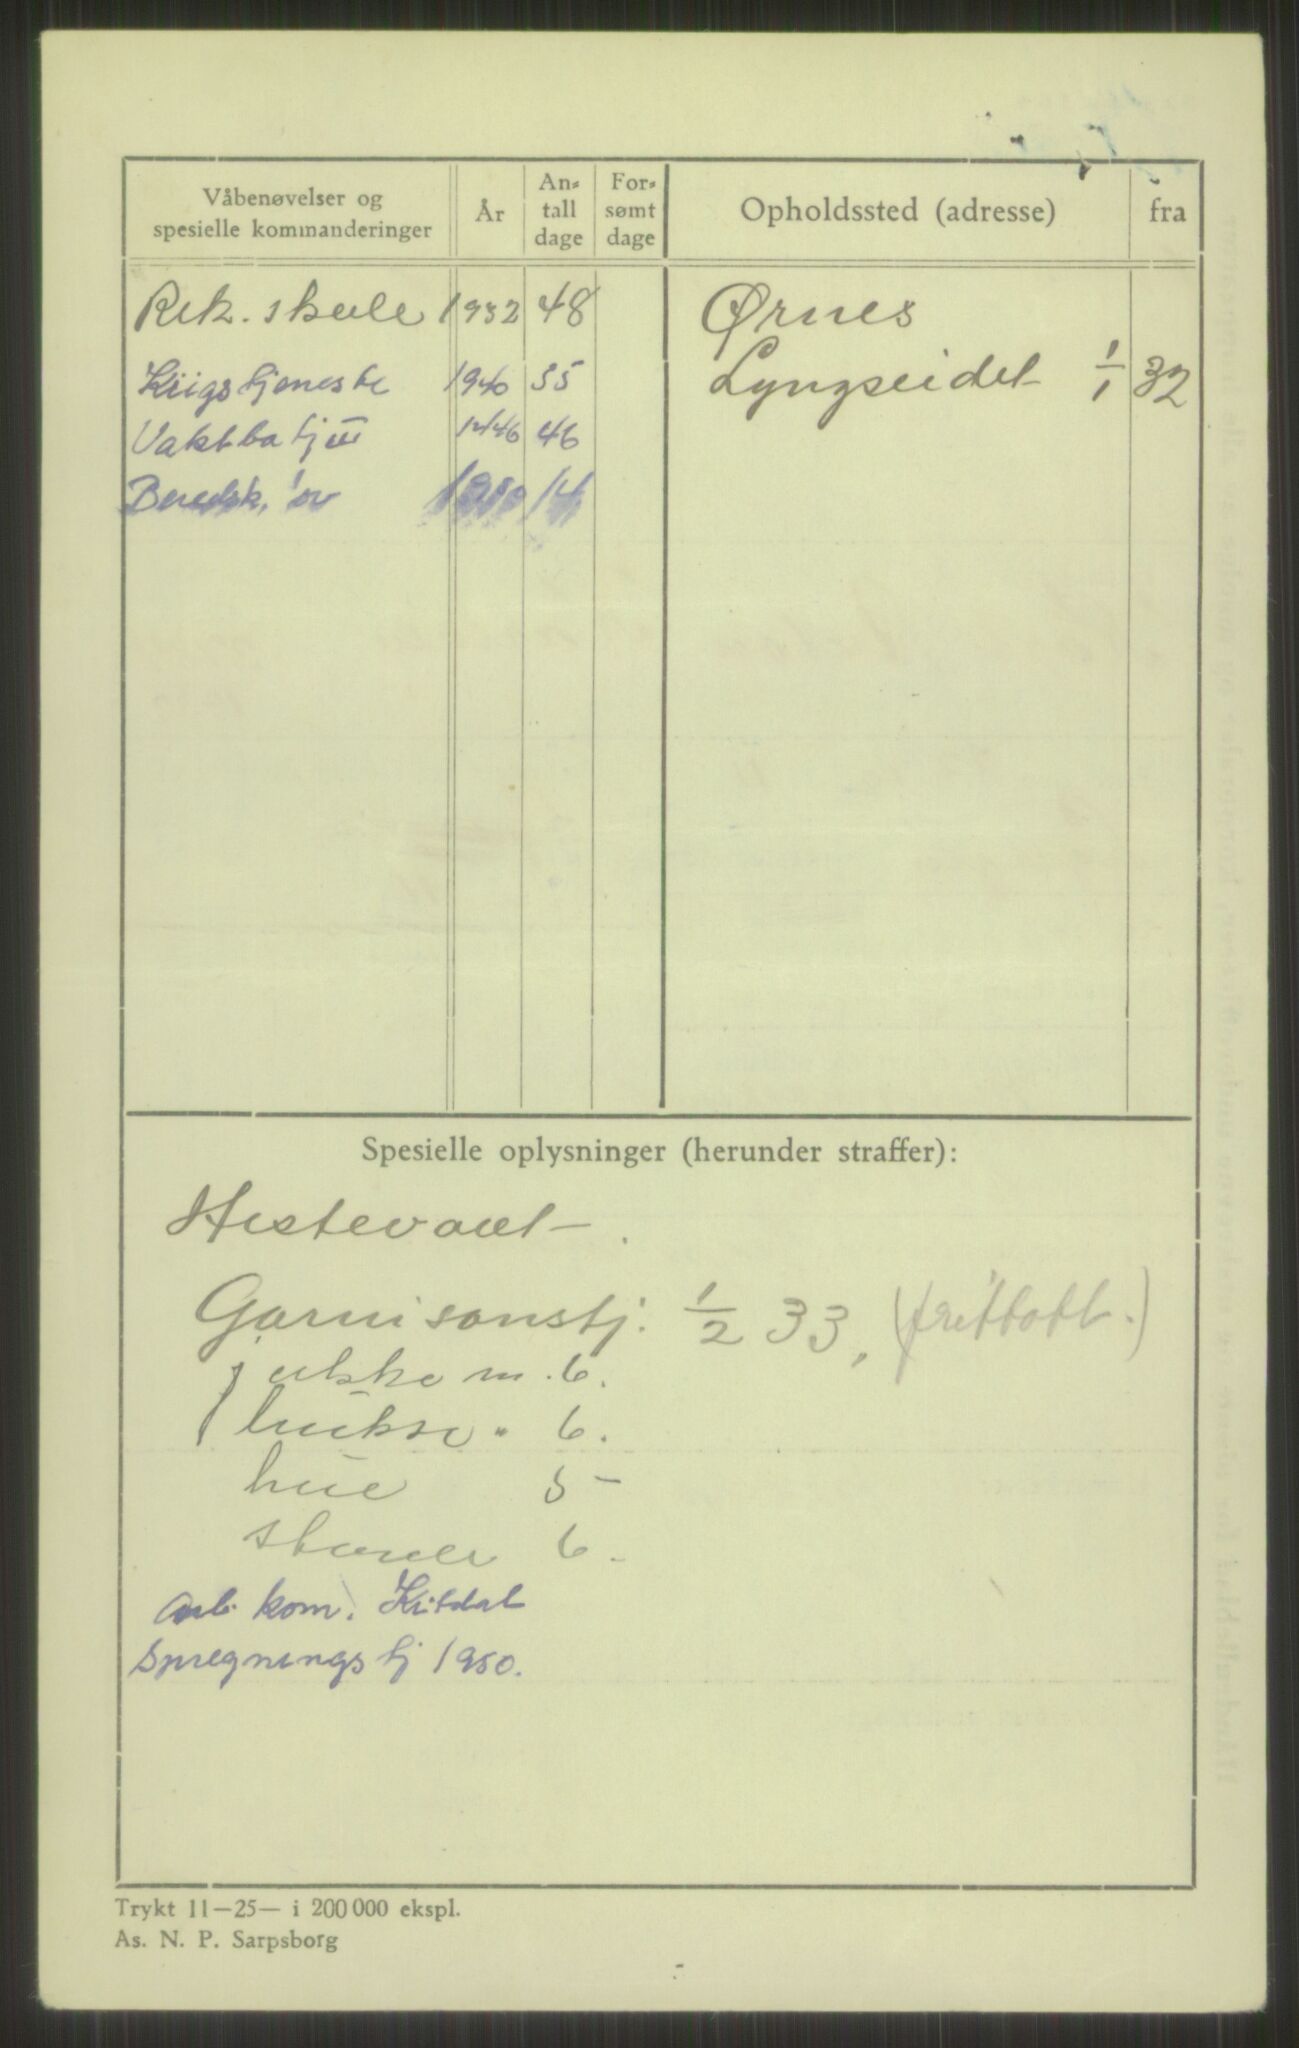 Våbenøvelser og
spesielle kommanderinger
År
An-
tall
dage
For-
sømt
dage
Opholdssted (adresse)
fra
Rek. skule 1932 48
Krigstjeneste 1940 55
Vaktbatj III 12/46 46
Beredsk. øv 1950 14
Ørnes
Lyngseidet 1/1 32
Spesielle oplysninger (herunder straffer):
Hestevant.
Garnisonstj. 1/2 33, (frittatt.)
jakke m. 6.
bukse " 6.
hue 5 -
støvle 6.
Arb. kom. Kitdal
Spregningstj 1950.
Trykt 11-25- i 200 000 ekspl.
As. N. P. Sarpsborg